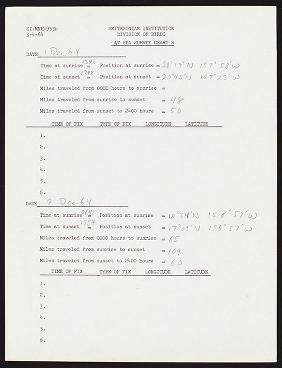 SI-MNH-959b
3-6-64
SMITHSONIAN INSTITUTION
DIVISION OF BIRDS
AT SEA SURVEY CHART B
DATE 1 Dec 64
Time at sunrise = Position at sunrise = 157° 58' W
Time at sunset = Position at sunset = 20°45'N 157°23'W
Miles traveled from 0000 hours to sunrise =
Miles traveled from sunrise to sunset = 48
Miles traveled from sunset to 2400 hours = 50
TIME OF FIX TYPE OF FIX LONGITUDE LATITUDE
1.
2.
3.
4.
5.
6.
DATE 2 Dec 64
Time at sunrise = Position at sunrise = 18°54'N 156°59'W
Time at sunset = Position at sunset = 17°05'N 156°57'W
Miles traveled from 0000 hours to sunrise = 65
Miles traveled from sunrise to sunset = 109
Miles traveled from sunset to 2400 hours = 60
TIME OF FIX TYPE OF FIX LONGITUDE LATITUDE
1.
2.
3.
4.
5.
6.